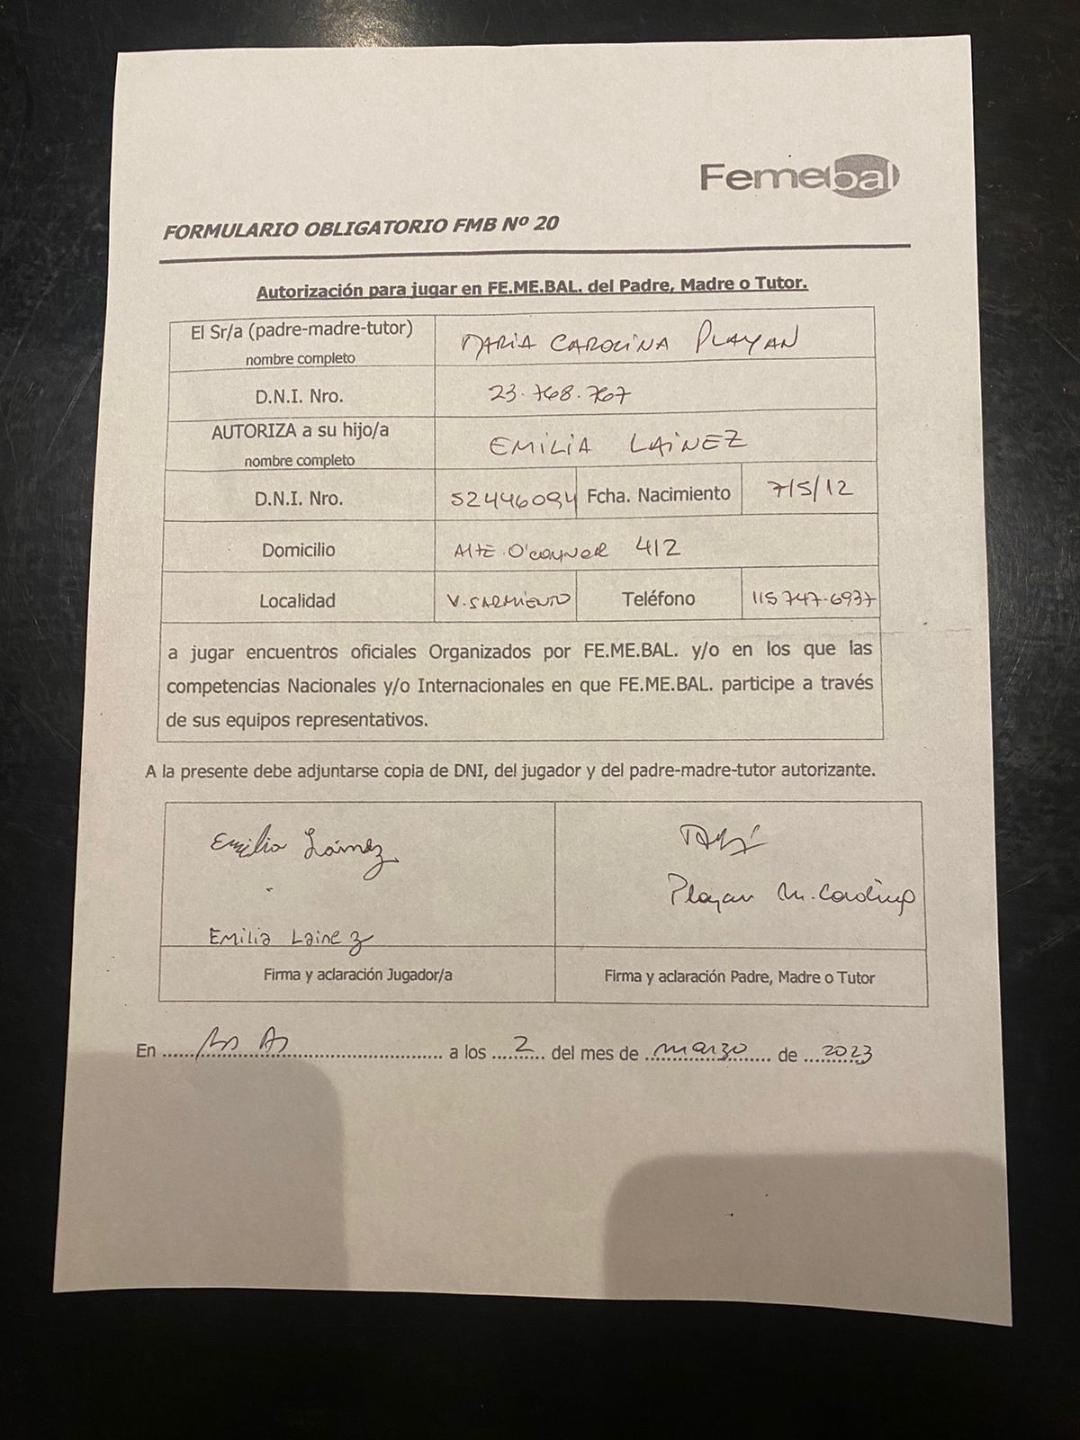 Femebal
FORMULARIO OBLIGATORIO FMB Nº 20
Autorización para jugar en FE.ME.BAL. del Padre, Madre o Tutor.
El Sr/a (padre-madre-tutor) MARIA CAROLINA PLAYAN
nombre completo
D.N.I. Nro. 23.768.767
AUTORIZA a su hijo/a EMILIA LAINEZ
nombre completo
D.N.I. Nro. 52446094 Fcha. Nacimiento 7/5/12
Domicilio Alte. O'Connor 412
Localidad V. SARMIENTO Teléfono 115747-6937
a jugar encuentros oficiales Organizados por FE.ME.BAL. y/o en los que las
competencias Nacionales y/o Internacionales en que FE.ME.BAL. participe a través
de sus equipos representativos.
A la presente debe adjuntarse copia de DNI, del jugador y del padre-madre-tutor autorizante.
Emilia Lainez
Playan M. Carolina
Emilia Lainez
Firma y aclaración Jugador/a Firma y aclaración Padre, Madre o Tutor
En Bs As a los 2 del mes de marzo de 2023